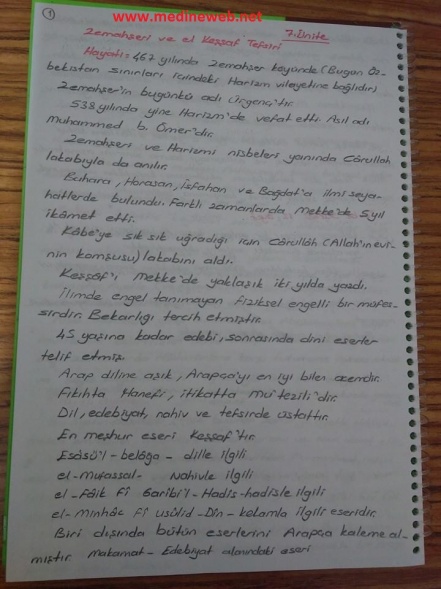 www.medineweb.net
1
7. Ünite
Zemahşeri ve el Keşşaf Tefsiri
Hayatı: 467 yılında Zemahşer köyünde (Bugün Öz-
bekistan sınırları içindeki Harizm vilayetine bağlıdır)
Zemahşer'in bugünkü adı Ürgenç'tir.
538 yılında yine Harizm'de vefat etti. Asıl adı
Muhammed b. Ömer'dir.
Zemahşeri ve Harizmi nisbeleri yanında Cârullah
lakabıyla da anılır.
Buhara, Horasan, İsfahan ve Bağdat'a ilmi seya-
hatlerde bulundu. Farklı zamanlarda Mekke'de 5 yıl
ikâmet etti.
Kâbe'ye sık sık uğradığı için Cârullâh (Allah'ın evi-
nin komşusu) lakabını aldı.
Keşşaf'ı Mekke'de yaklaşık iki yılda yazdı.
İlimde engel tanımayan fiziksel engelli bir müfes-
sirdir. Bekarlığı tercih etmiştir.
45 yaşına kadar edebi, sonrasında dini eserler
telif etmiş.
Arap diline aşık, Arapça'yı en iyi bilen acemdir.
Fıkıhta Hanefi, itikatta Mu'tezili'dir.
Dil, edebiyat, nahiv ve tefsirde üstattır.
En meşhur eseri Keşşaf'tır.
Esâsü'l-belâga - dille ilgili
el-Mufassal- Nahivle ilgili
el-Fâik Fî Garibi'l-Hadis-hadisle ilgili
el-Minhâc Fî usûlid-Dîn-kelamla ilgili eseridir.
Biri dışında bütün eserlerini Arapça kaleme al-
mıştır. Makamat- Edebiyat alanındaki eseri